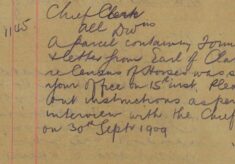 Chief Clerk
1145 All Dwns
A parcel containing Form
& letter from Earl of Cla
re Census of Horses was s
your office on 15th inst. Plea
out instructions as per
interview with the Chief
on 30th Septr 1909